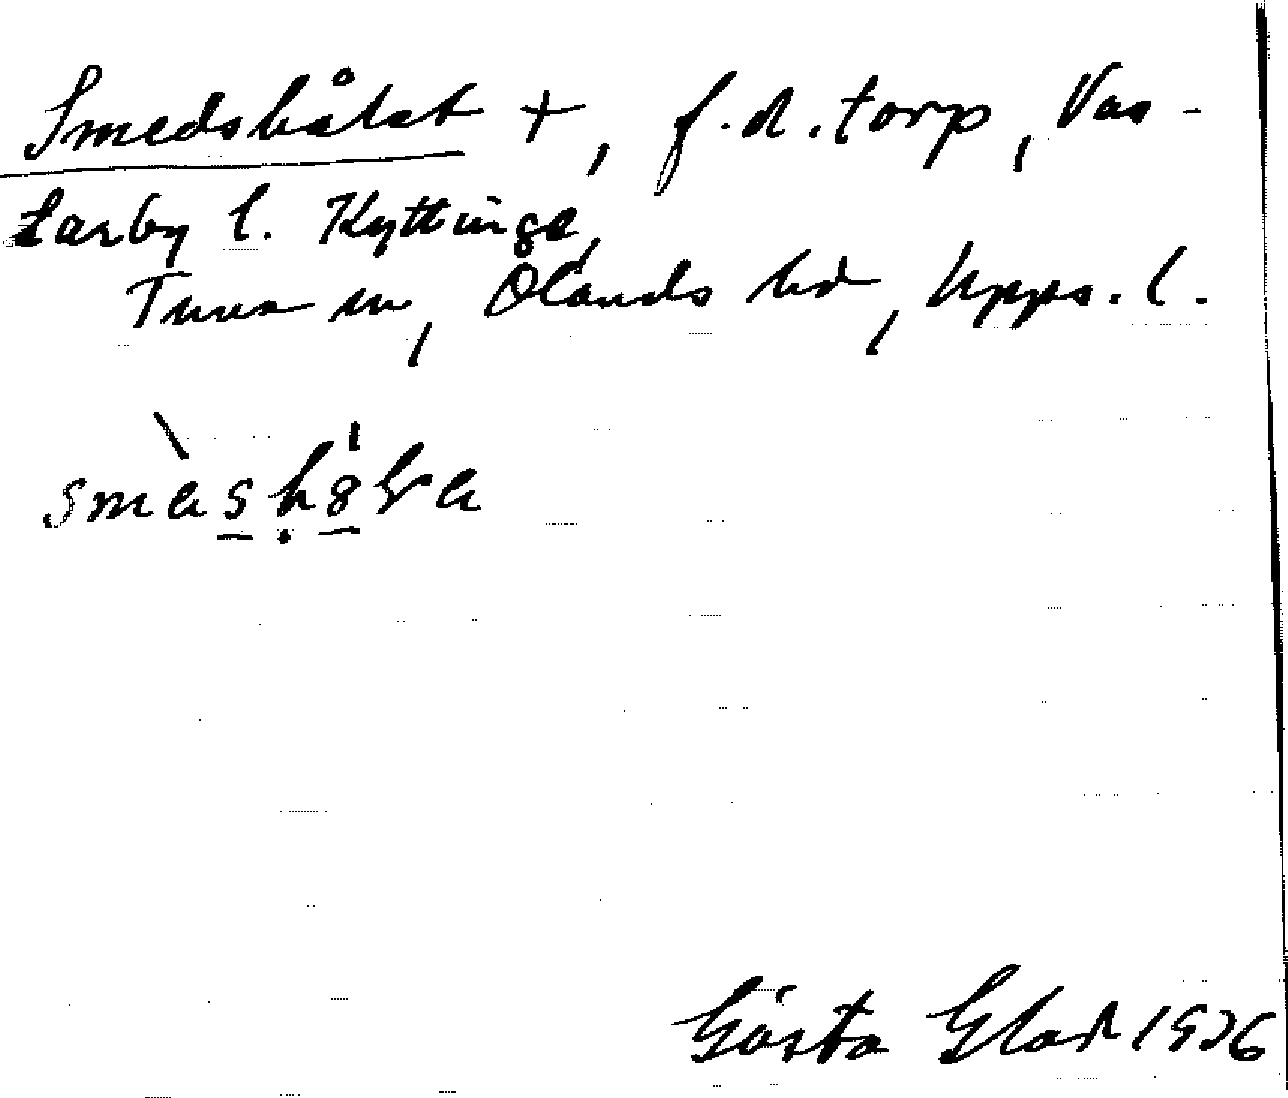 Smedshålet +, f.d. torp, Vas-
larby l. Kyttinge,
Tuna sn, Olands hd, Upps. l.
Gösta Glad 1926